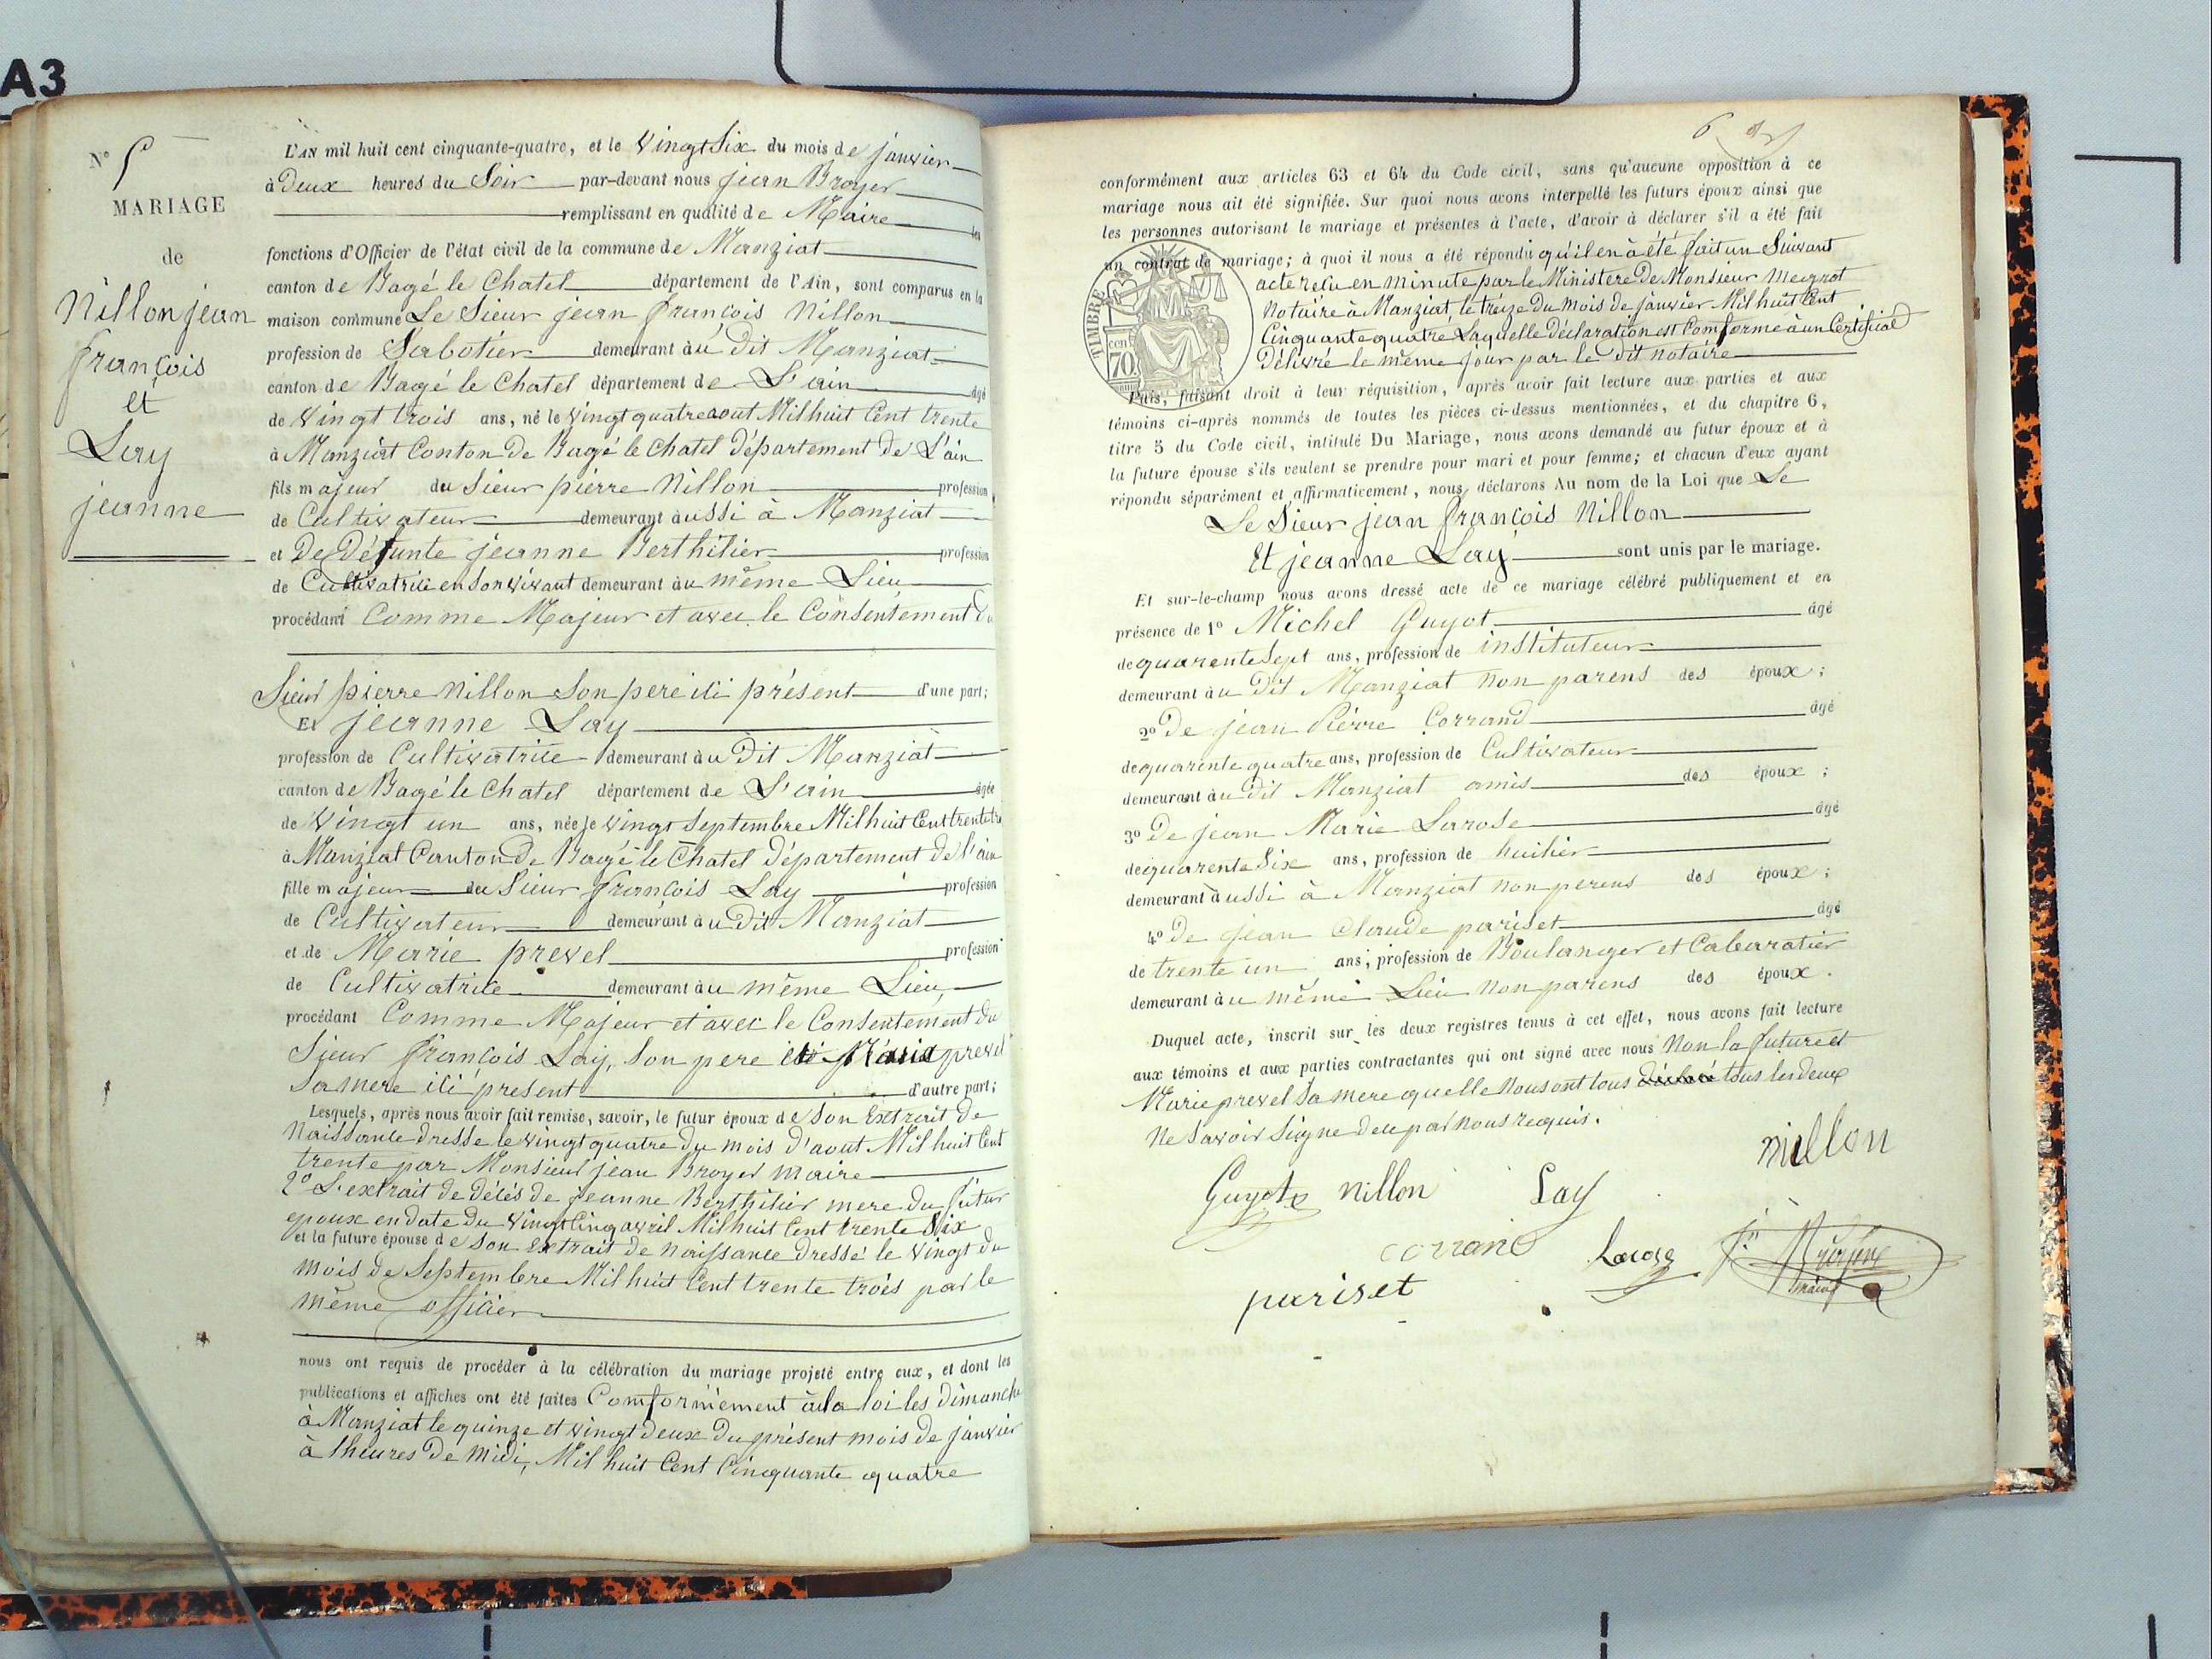 A3
N° 5
MARIAGE
de
Nillon jean
françois
et
Lay
jeanne
L'AN mil huit cent cinquante-quatre, et le Vingt Six du mois de janvier
à Deux heures du Soir par-devant nous jean Broyer
remplissant en qualité de Maire les
fonctions d'Officier de l'état civil de la commune de Manziat
canton de Bagé le Chatel département de l'Ain, sont comparus en la
maison commune Le Sieur jean françois Nillon
profession de Sabotier demeurant àu dit Manziat
canton de Bagé le Chatel département de L'ain âgé
de Vingt trois ans, né le Vingt quatre aout Mil huit Cent trente
à Manziat Conton de Bagé le Chatel Département de L'ain
fils majeur du Sieur pierre Nillon profession
de Cultivateur demeurant àussi à Manziat
et De Défunte jeanne Berthilier profession
de Cultivatrice en Son Vivant demeurant àu même Lieu
procédant Comme Majeur et avec le Consentement du
Sieur pierre Nillon Son pere ici présent d'une part;
Et jeanne Lay
profession de Cultivatrice demeurant àu Dit Manziat
canton de Bagé le Chatel département de L'ain âgée
de Vingt un ans, née le Vingt Septembre Mil huit Cent trente
à Manziat Canton de Bagé le Chatel Département de l'ain
fille majeur du Sieur françois Lay profession
de Cultivateur demeurant àu Dit Manziat
et de Marie prevel profession
de Cultivatrice demeurant àu même Lieu,
procédant Comme Majeur et avec le Consentement du
Sieur françois Lay, Son pere et Marie prevel
Sa mere ici présent d'autre part;
Lesquels, après nous avoir fait remise, savoir, le futur époux de Son Extrait de
Naissance dressé le Vingt quatre du mois d'aout Mil huit Cent
trente par Monsieur jean Broyer Maire
2° L'extrait de Décés de jeanne Berthilier mere du futur
epoux en date du Vingt Cinq avril Mil huit Cent trente Six
et la future épouse de Son Extrait de Naissance Dressé le Vingt du
mois de Septembre Mil huit Cent trente trois par le
même officier
nous ont requis de procéder à la célébration du mariage projeté entre eux, et dont les
publications et affiches ont été faites Comformément à la loi les Dimanche
à Manziat le quinze et Vingt deux Du présent mois de janvier
à lheures De Midi, Mil huit Cent Cinquante quatre
6
conformément aux articles 63 et 64 du Code civil, sans qu'aucune opposition à ce
mariage nous ait été signifiée. Sur quoi nous avons interpellé les futurs époux ainsi que
les personnes autorisant le mariage et présentes à l'acte, d'avoir à déclarer s'il a été fait
un contrat de mariage; à quoi il nous a été répondu qu'il en à été fait un Suivant
acte reçu en minute par le Ministere De Monsieur Meynot
Notaire à Manziat, le treize Du Mois de janvier Mil huit Cent
Cinquante quatre Laquelle Déclaration est Comforme à un Certificat
Délivré le même jour par le Dit notaire
TIMBRE
cen.
70.
Puis, faisant droit à leur réquisition, après avoir fait lecture aux parties et aux
témoins ci-après nommés de toutes les pièces ci-dessus mentionnées, et du chapitre 6,
titre 5 du Code civil, intitulé Du Mariage, nous avons demandé au futur époux et à
la future épouse s'ils veulent se prendre pour mari et pour femme; et chacun d'eux ayant
répondu séparément et affirmativement, nous déclarons Au nom de la Loi que Le
Le Sieur jean françois Nillon
Et jeanne Lay sont unis par le mariage.
Et sur-le-champ nous avons dressé acte de ce mariage célébré publiquement et en
présence de 1° Michel Guyot âgé
de quarente Sept ans, profession de instituteur
demeurant àu Dit Manziat non parens des époux;
2° De jean Pierre Corrand âgé
de quarente quatre ans, profession de Cultivateur
demeurant àu Dit Manziat amis des époux;
3° De jean Marie Larose âgé
de quarente Six ans, profession de huilier
demeurant àussi à Manziat non perens des époux;
4° De jean Claude pariset âgé
de trente un ans; profession de Boulanger et Cabaratier
demeurant àu même Lieu Non parens des époux.
Duquel acte, inscrit sur les deux registres tenus à cet effet, nous avons fait lecture
aux témoins et aux parties contractantes qui ont signé avec nous Non la future et
Marie prevel Sa mere quelle Nous ont tous déclaré tous les deux
Ne Savoir Signe de ce par Nous requis.
nillon
Guyot Nillon Lay
corrand Larose
pariset
maire